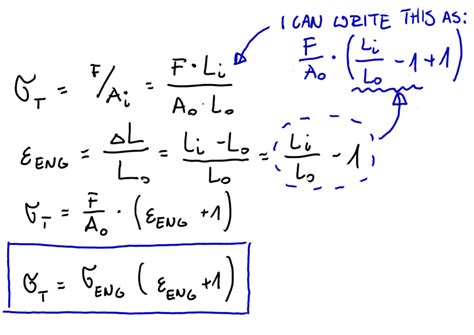 I CAN WRITE THIS AS:
F/A₀ · (Lᵢ/L₀ - 1 + 1)
σ_T = F/Aᵢ = F · Lᵢ / A₀ · L₀
ε_ENG = ΔL/L₀ = Lᵢ - L₀ / L₀ = Lᵢ/L₀ - 1
σ_T = F/A₀ · (ε_ENG + 1)
σ_T = σ_ENG (ε_ENG + 1)